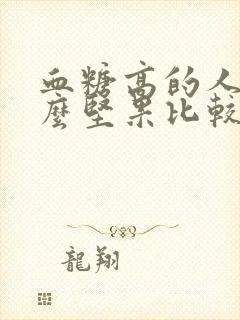 血糖高的人
麼堅果比較
龍翔